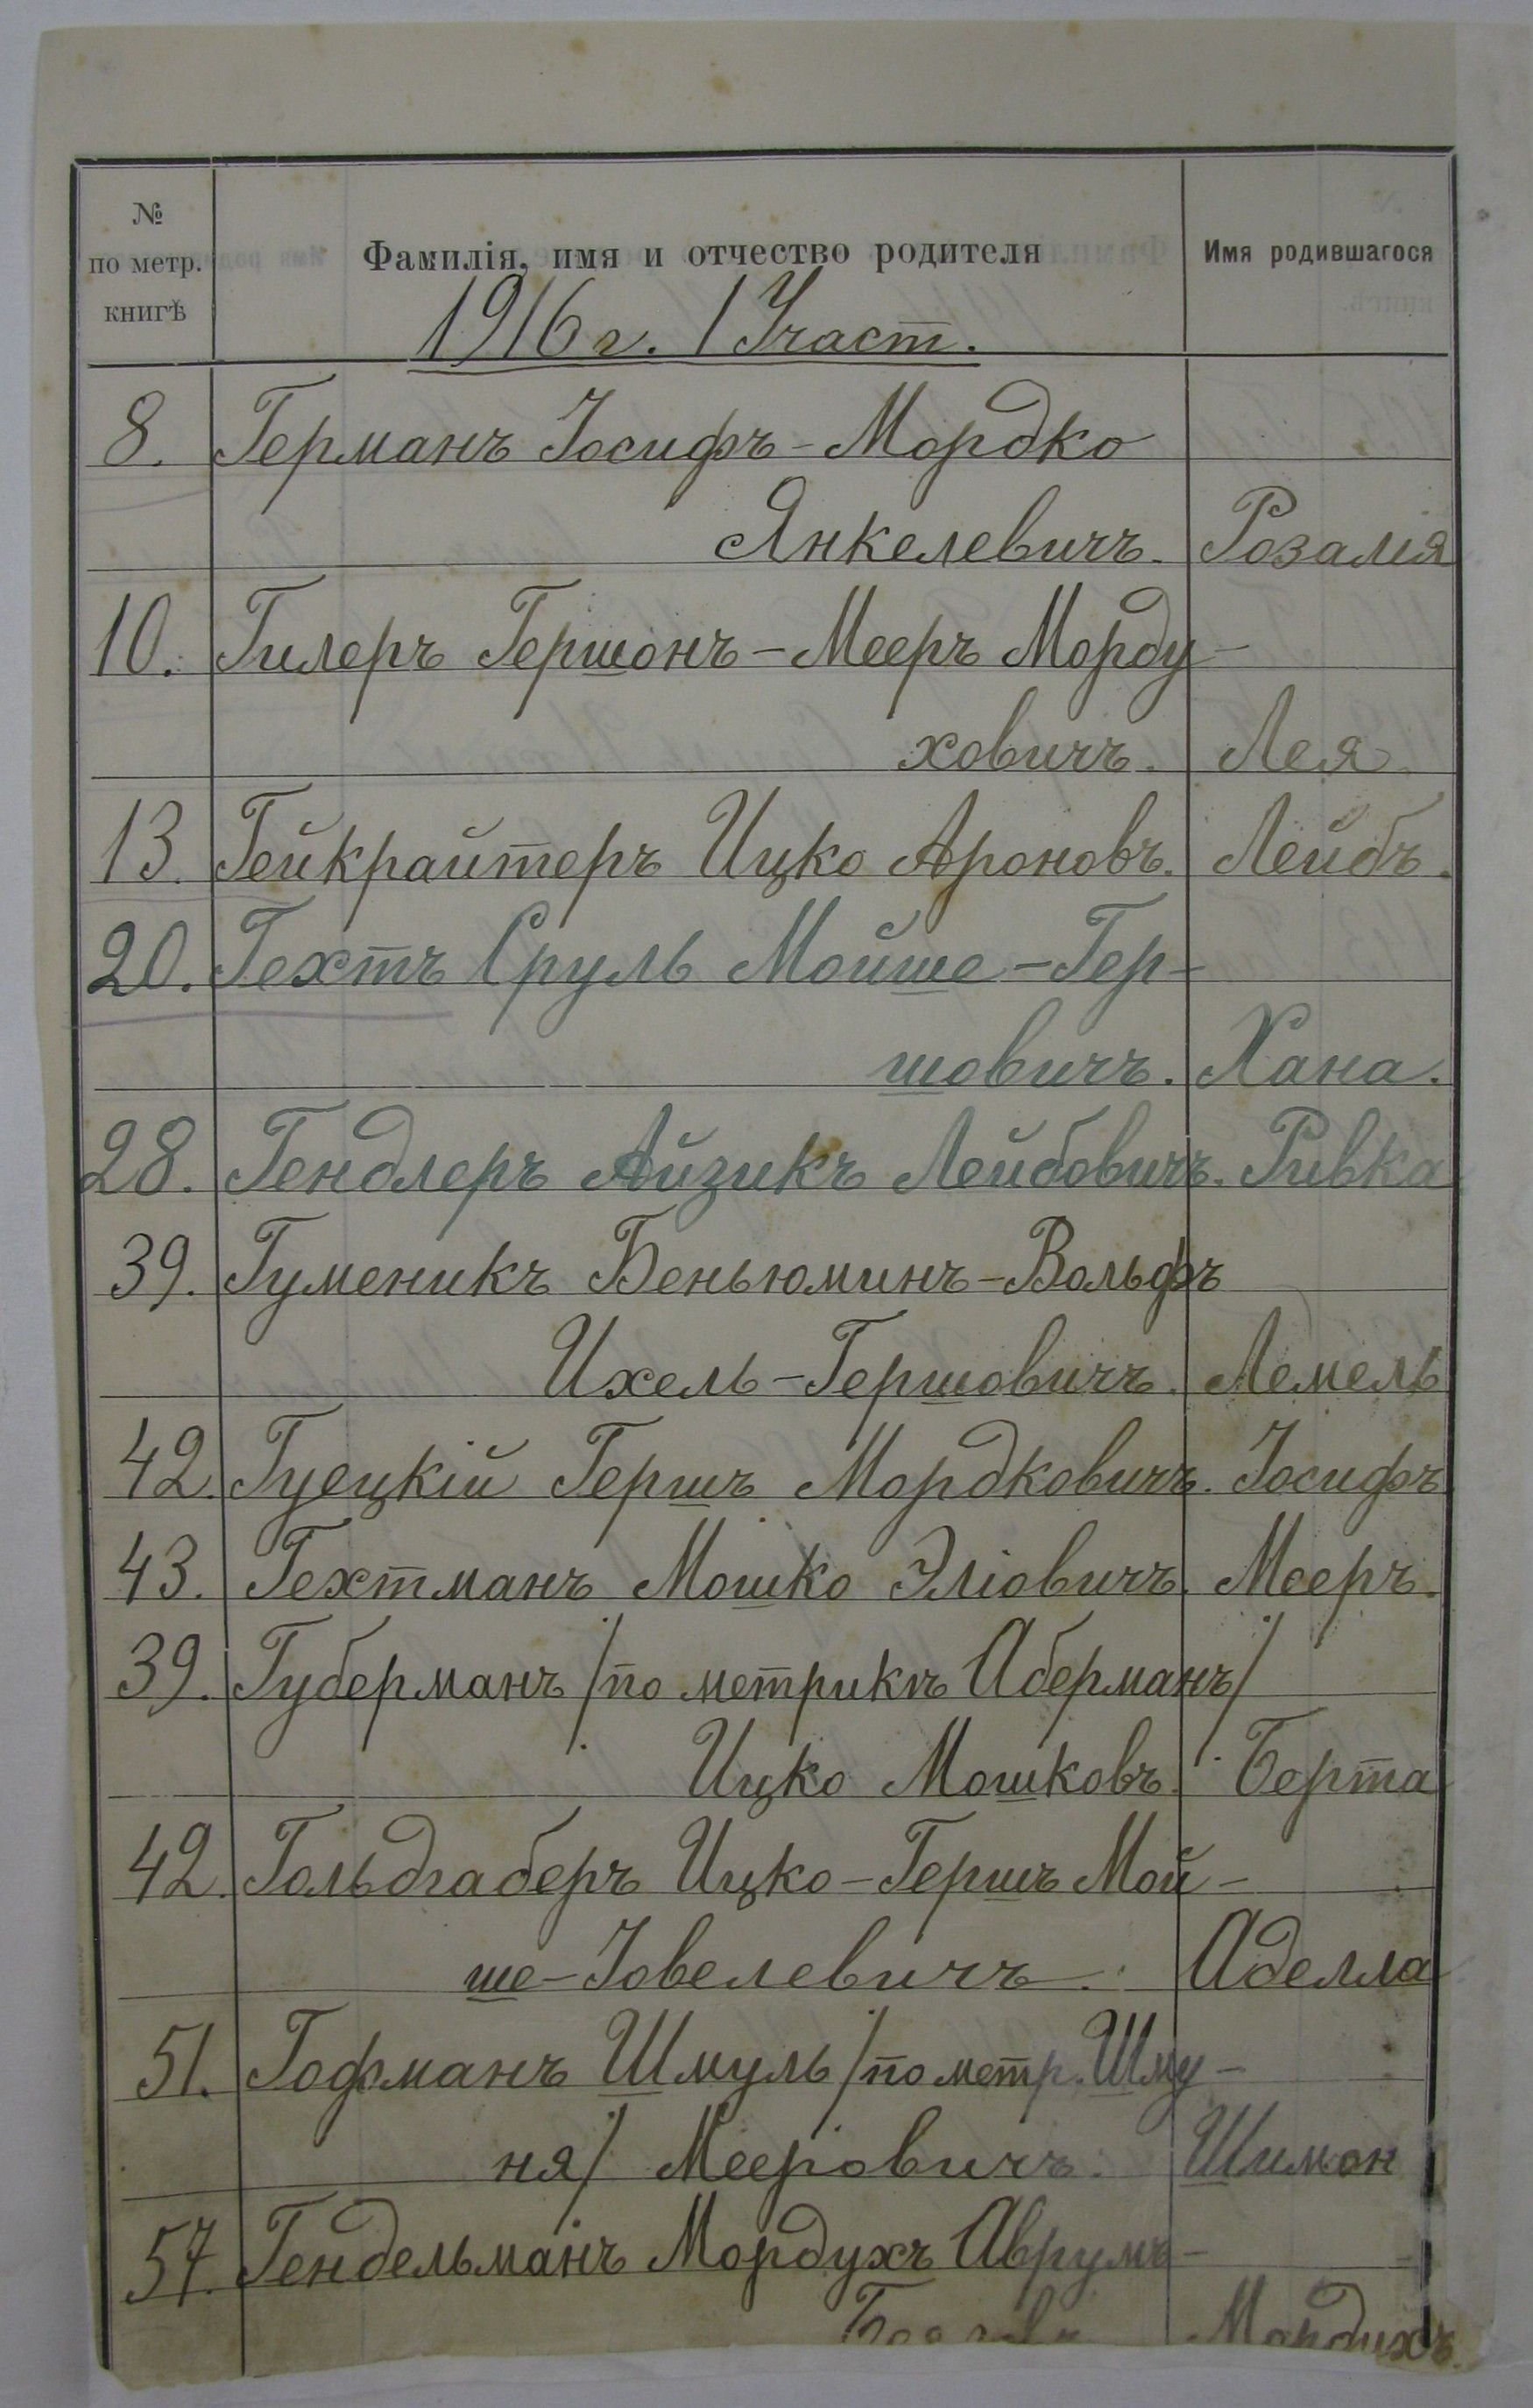 №
по метр.
книгѣ
Фамилія, имя и отчество родителя
Имя родившагося
1916 г. I Участ.
8. Германъ Іосифъ-Мордко
Янкелевичъ. Розалія
10. Гилеръ Гершонъ-Мееръ Морду-
ховичъ. Лея
13. Гейкрайтеръ Ицко Ароновъ. Лейбъ.
20. Гехтъ Сруль Мойше-Гер-
шовичъ. Хана.
28. Гендлеръ Айзикъ Лейбовичъ. Ривка
39. Гуменикъ Беньюминъ-Вольфъ
Ихель-Гершовичъ. Лемель
42. Гуецкій Гершъ Мордковичъ. Іосифъ
43. Гехтманъ Мошко Эліовичъ. Мееръ.
39. Губерманъ /по метрикѣ Аберманъ/
Ицко Мошковъ. Берта
42. Гольдгаберъ Ицко-Гершъ Мой-
ше-Іовелевичъ. Аделла
51. Гофманъ Шмуль /по метр. Шму-
ня/ Мееровичъ. Шимон
57. Гендельманъ Мордухъ Аврумъ-
Мордухъ.